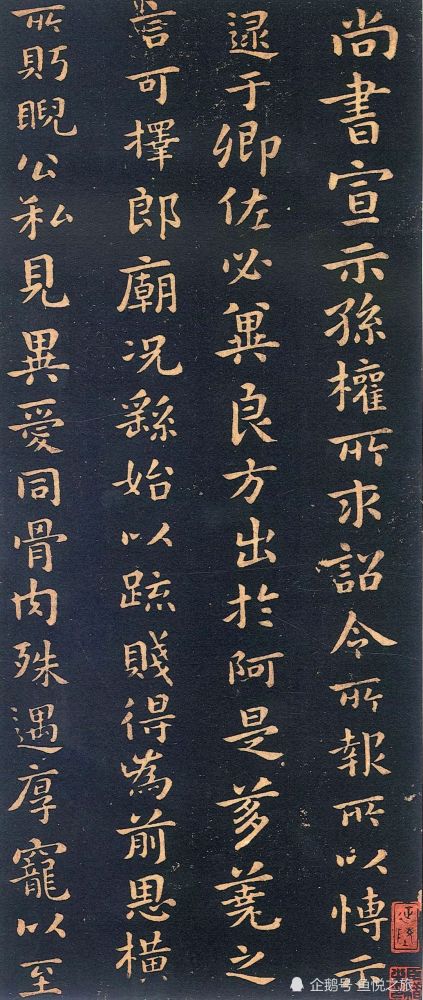 尚書宣示孫權所求詔令所報所以博示
逮于卿佐必冀良方出於阿是芻蕘之
言可擇郎廟況繇始以疏賤得為前恩橫
所眄睨公私見異愛同骨肉殊遇厚寵以至
企鹅号 鱼悦之旅